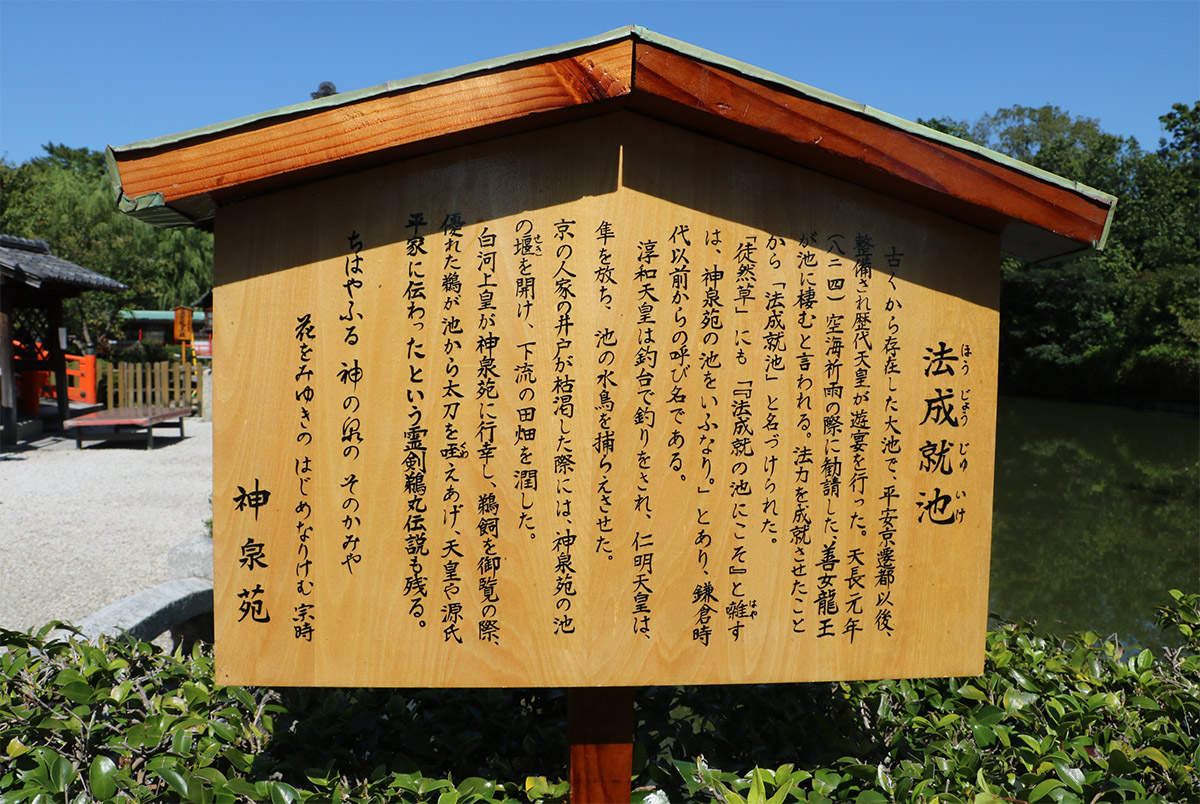 法成就池
ほう じょう じゅ いけ
古くから存在した大池で、平安京遷都以後、
整備され歴代天皇が遊宴を行った。天長元年
(八二四)空海祈雨の際に勧請した、善女龍王
が池に棲むと言われる。法力を成就させたこと
から「法成就池」と名づけられた。
「徒然草」にも『「法成就の池にこそ』と囃す
はや
は、神泉苑の池をいふなり。」とあり、鎌倉時
代以前からの呼び名である。
淳和天皇は釣台で釣りをされ、仁明天皇は、
隼を放ち、池の水鳥を捕らえさせた。
京の人家の井戸が枯渇した際には、神泉苑の池
の堰を開け、下流の田畑を潤した。
せき
白河上皇が神泉苑に行幸し、鵜飼を御覧の際、
優れた鵜が池から太刀を咥えあげ、天皇や源氏
くわ
平家に伝わったという霊剣鵜丸伝説も残る。
ちはやふる 神の泉の そのかみや
花をみゆきの はじめなりけむ 宗時
神泉苑